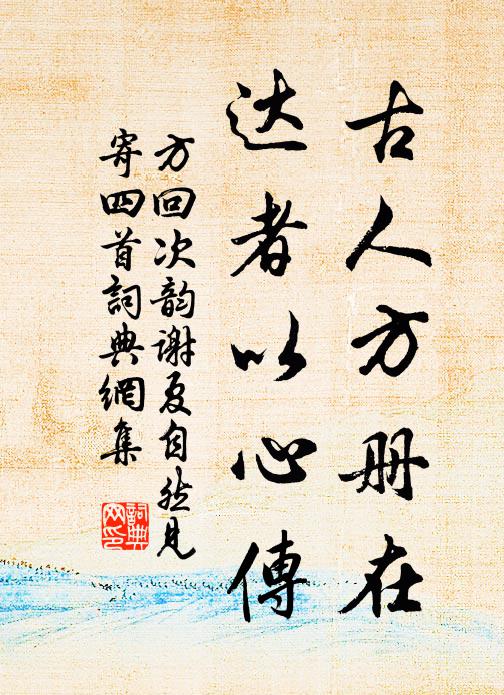 古人方册在
达者以心傳
方回次韵谢夏自然见
寄四首詞典網集
詞典网印